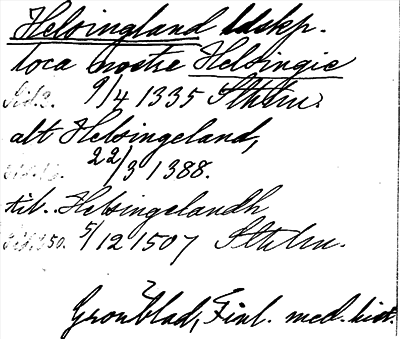 Helsingland ldskp.
loca nostre Helsingie
Sid. 2. 9/4 1335 Sthlm.
alt Helsingeland,
22/3 1388.
til. Helsingelandh
Sid. 350. 5/12 1507 Sthlm.
Grönblad, Finl. med. hist.